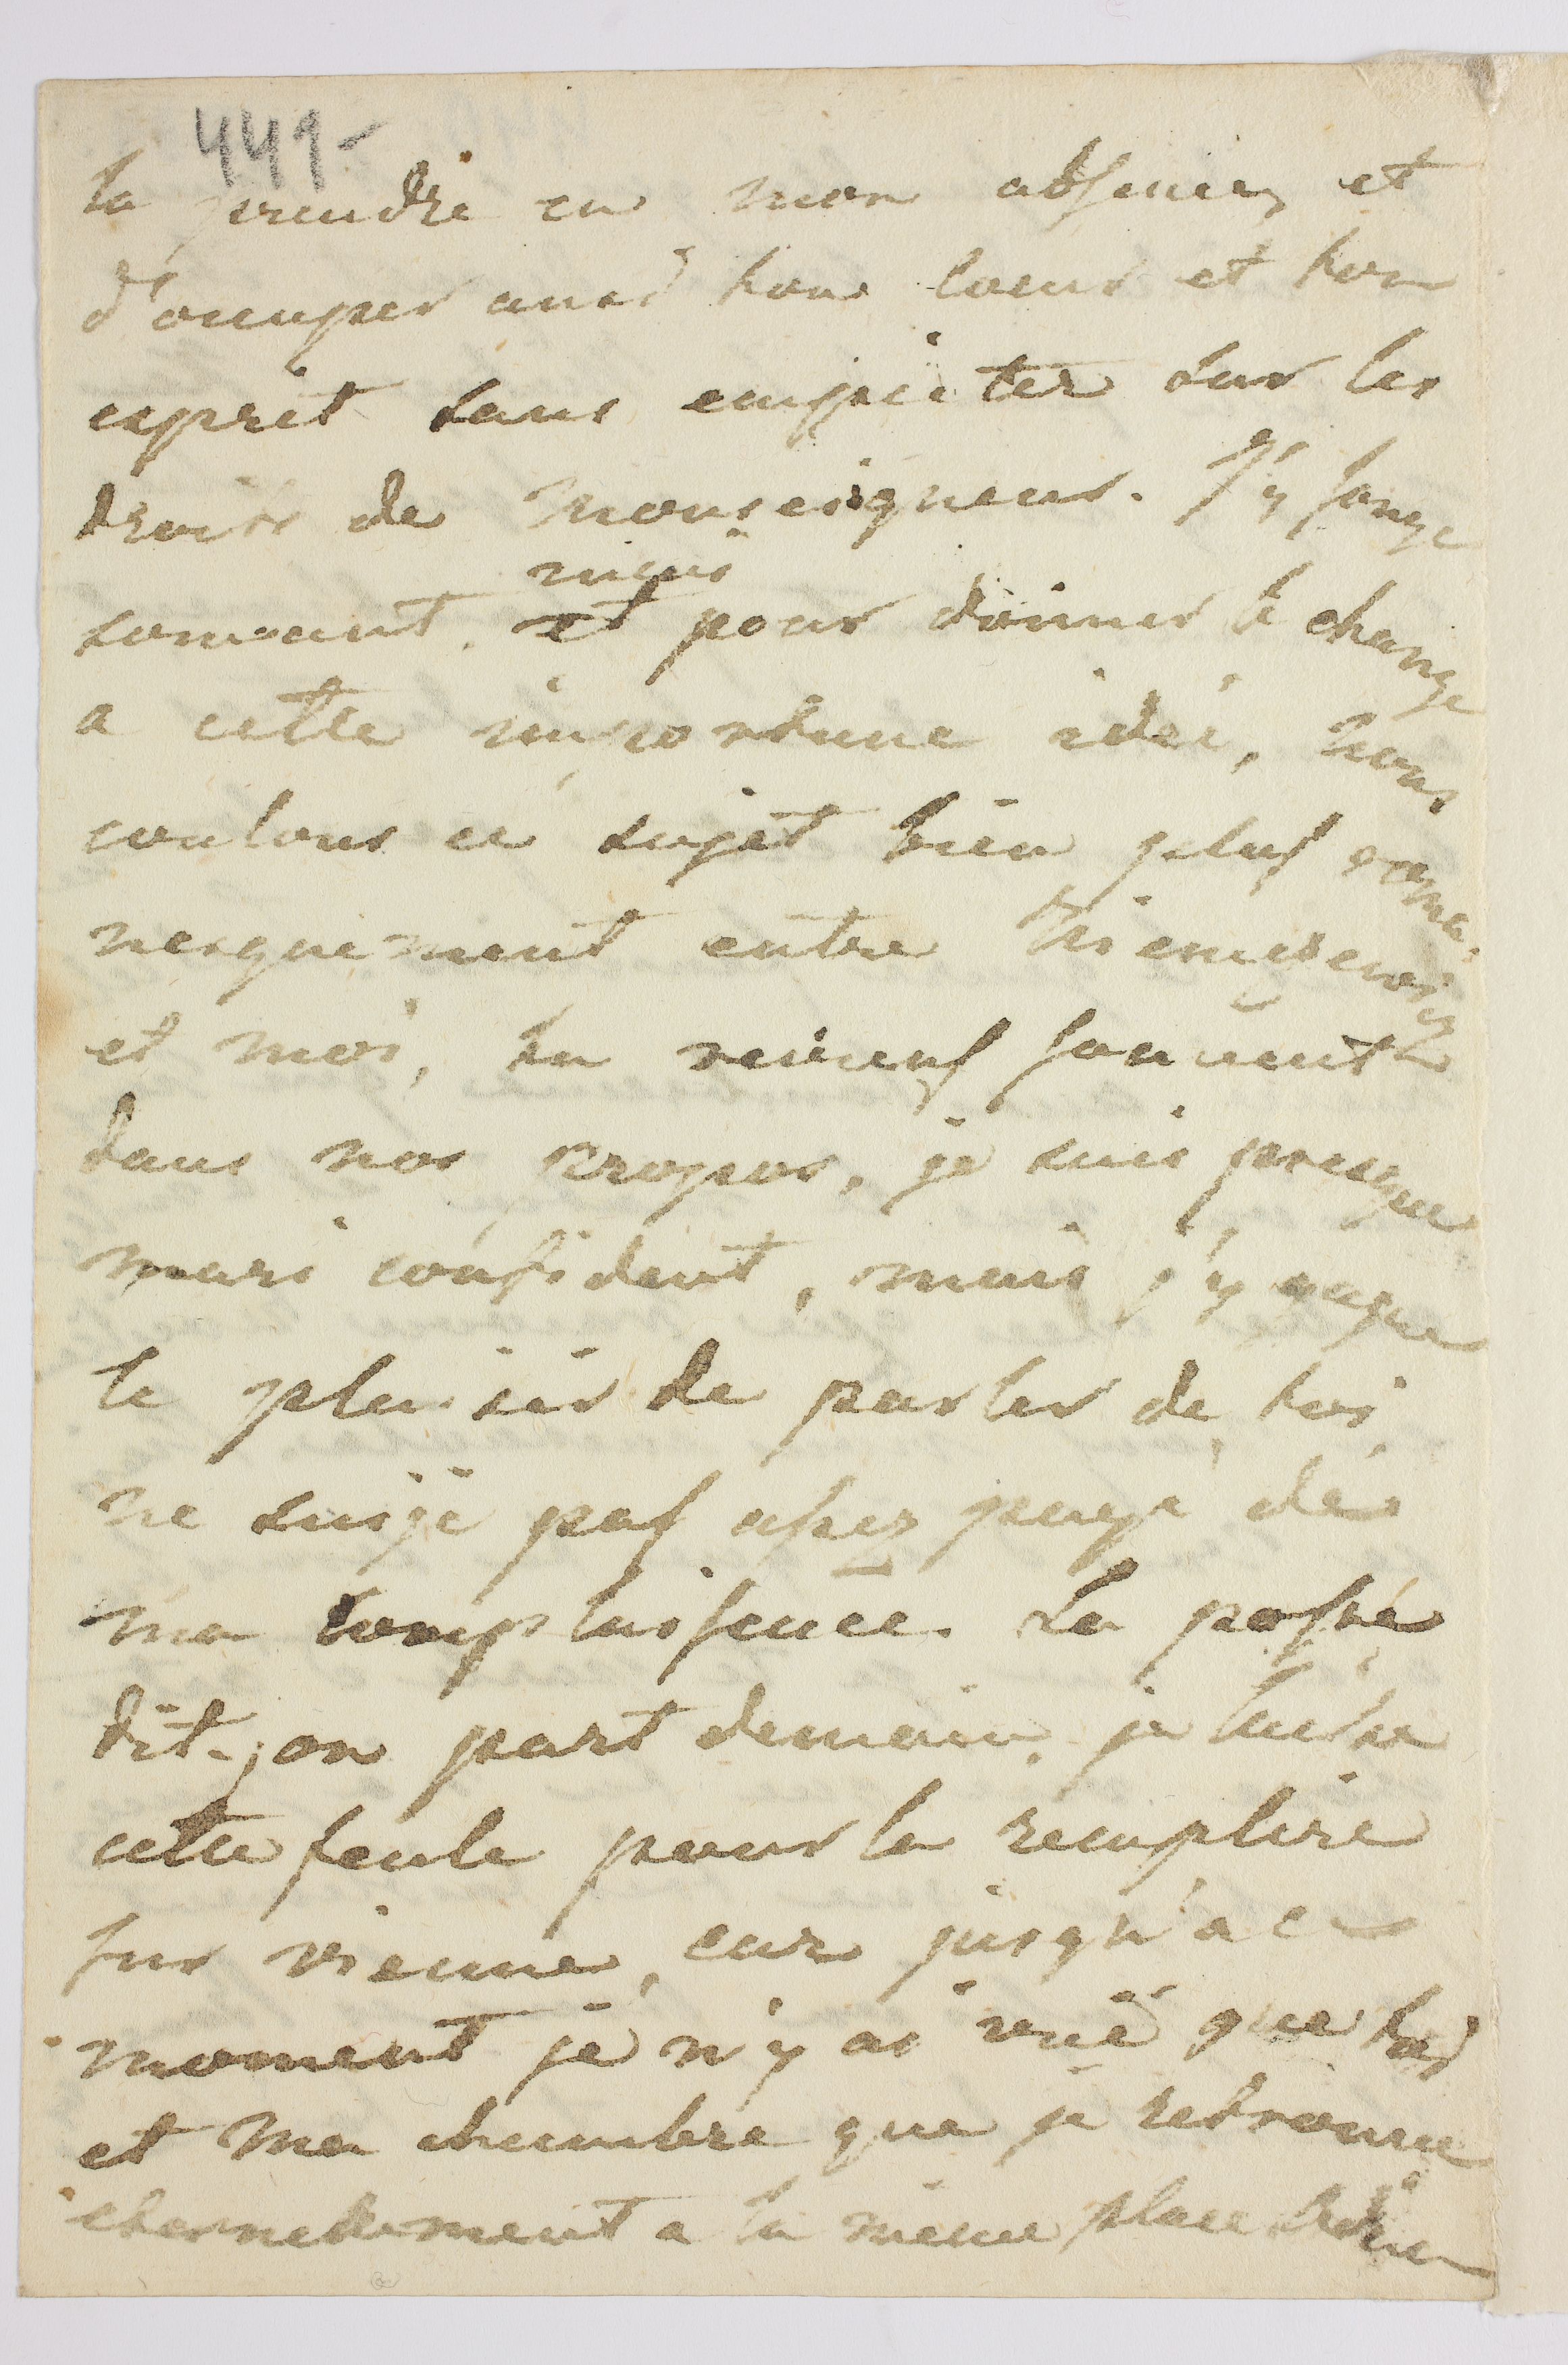 449-
la prendre en mon absence, et
d'occuper aussi ton coeur et ton
esprit sans empieter sur les
droits de Monseigneur. J'y songe
souvent. mais
et pour donner le change
a cette importune idée, nous
coulons ce sujet bien plus roma-
nesquement entre
et moi, tu reviens souvent
dans nos propos, je suis presque
mari confident, mais j'y gagne
le plaisir de parler de toi,
ne suije pas assez payé de
ma complaisence. La poste
dit-on part demain, je laisse
cette feule pour la remplire
sur vienne, car jusqu'a ce
moment je n'y ai vüe que toi
et ma chambre que je retrouve
eternellement a la même place